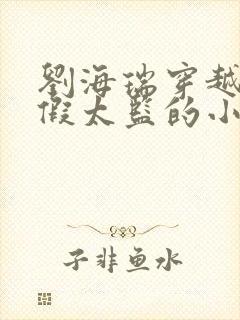 劉海瑞穿越
假太監的小
子非鱼水